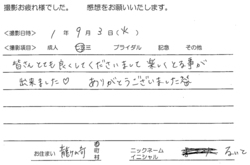 撮影お疲れ様でした。 感想をお願いいたします。
<撮影日時> 1年 9月 3日(火)
<撮影項目> 成人 七五三 ブライダル 記念 その他
皆さんとても良くしてくださいまして楽しくとる事が
出来ました♡ ありがとうございました
お住まい 龍ケ崎 市 町村 ニックネーム イニシャル